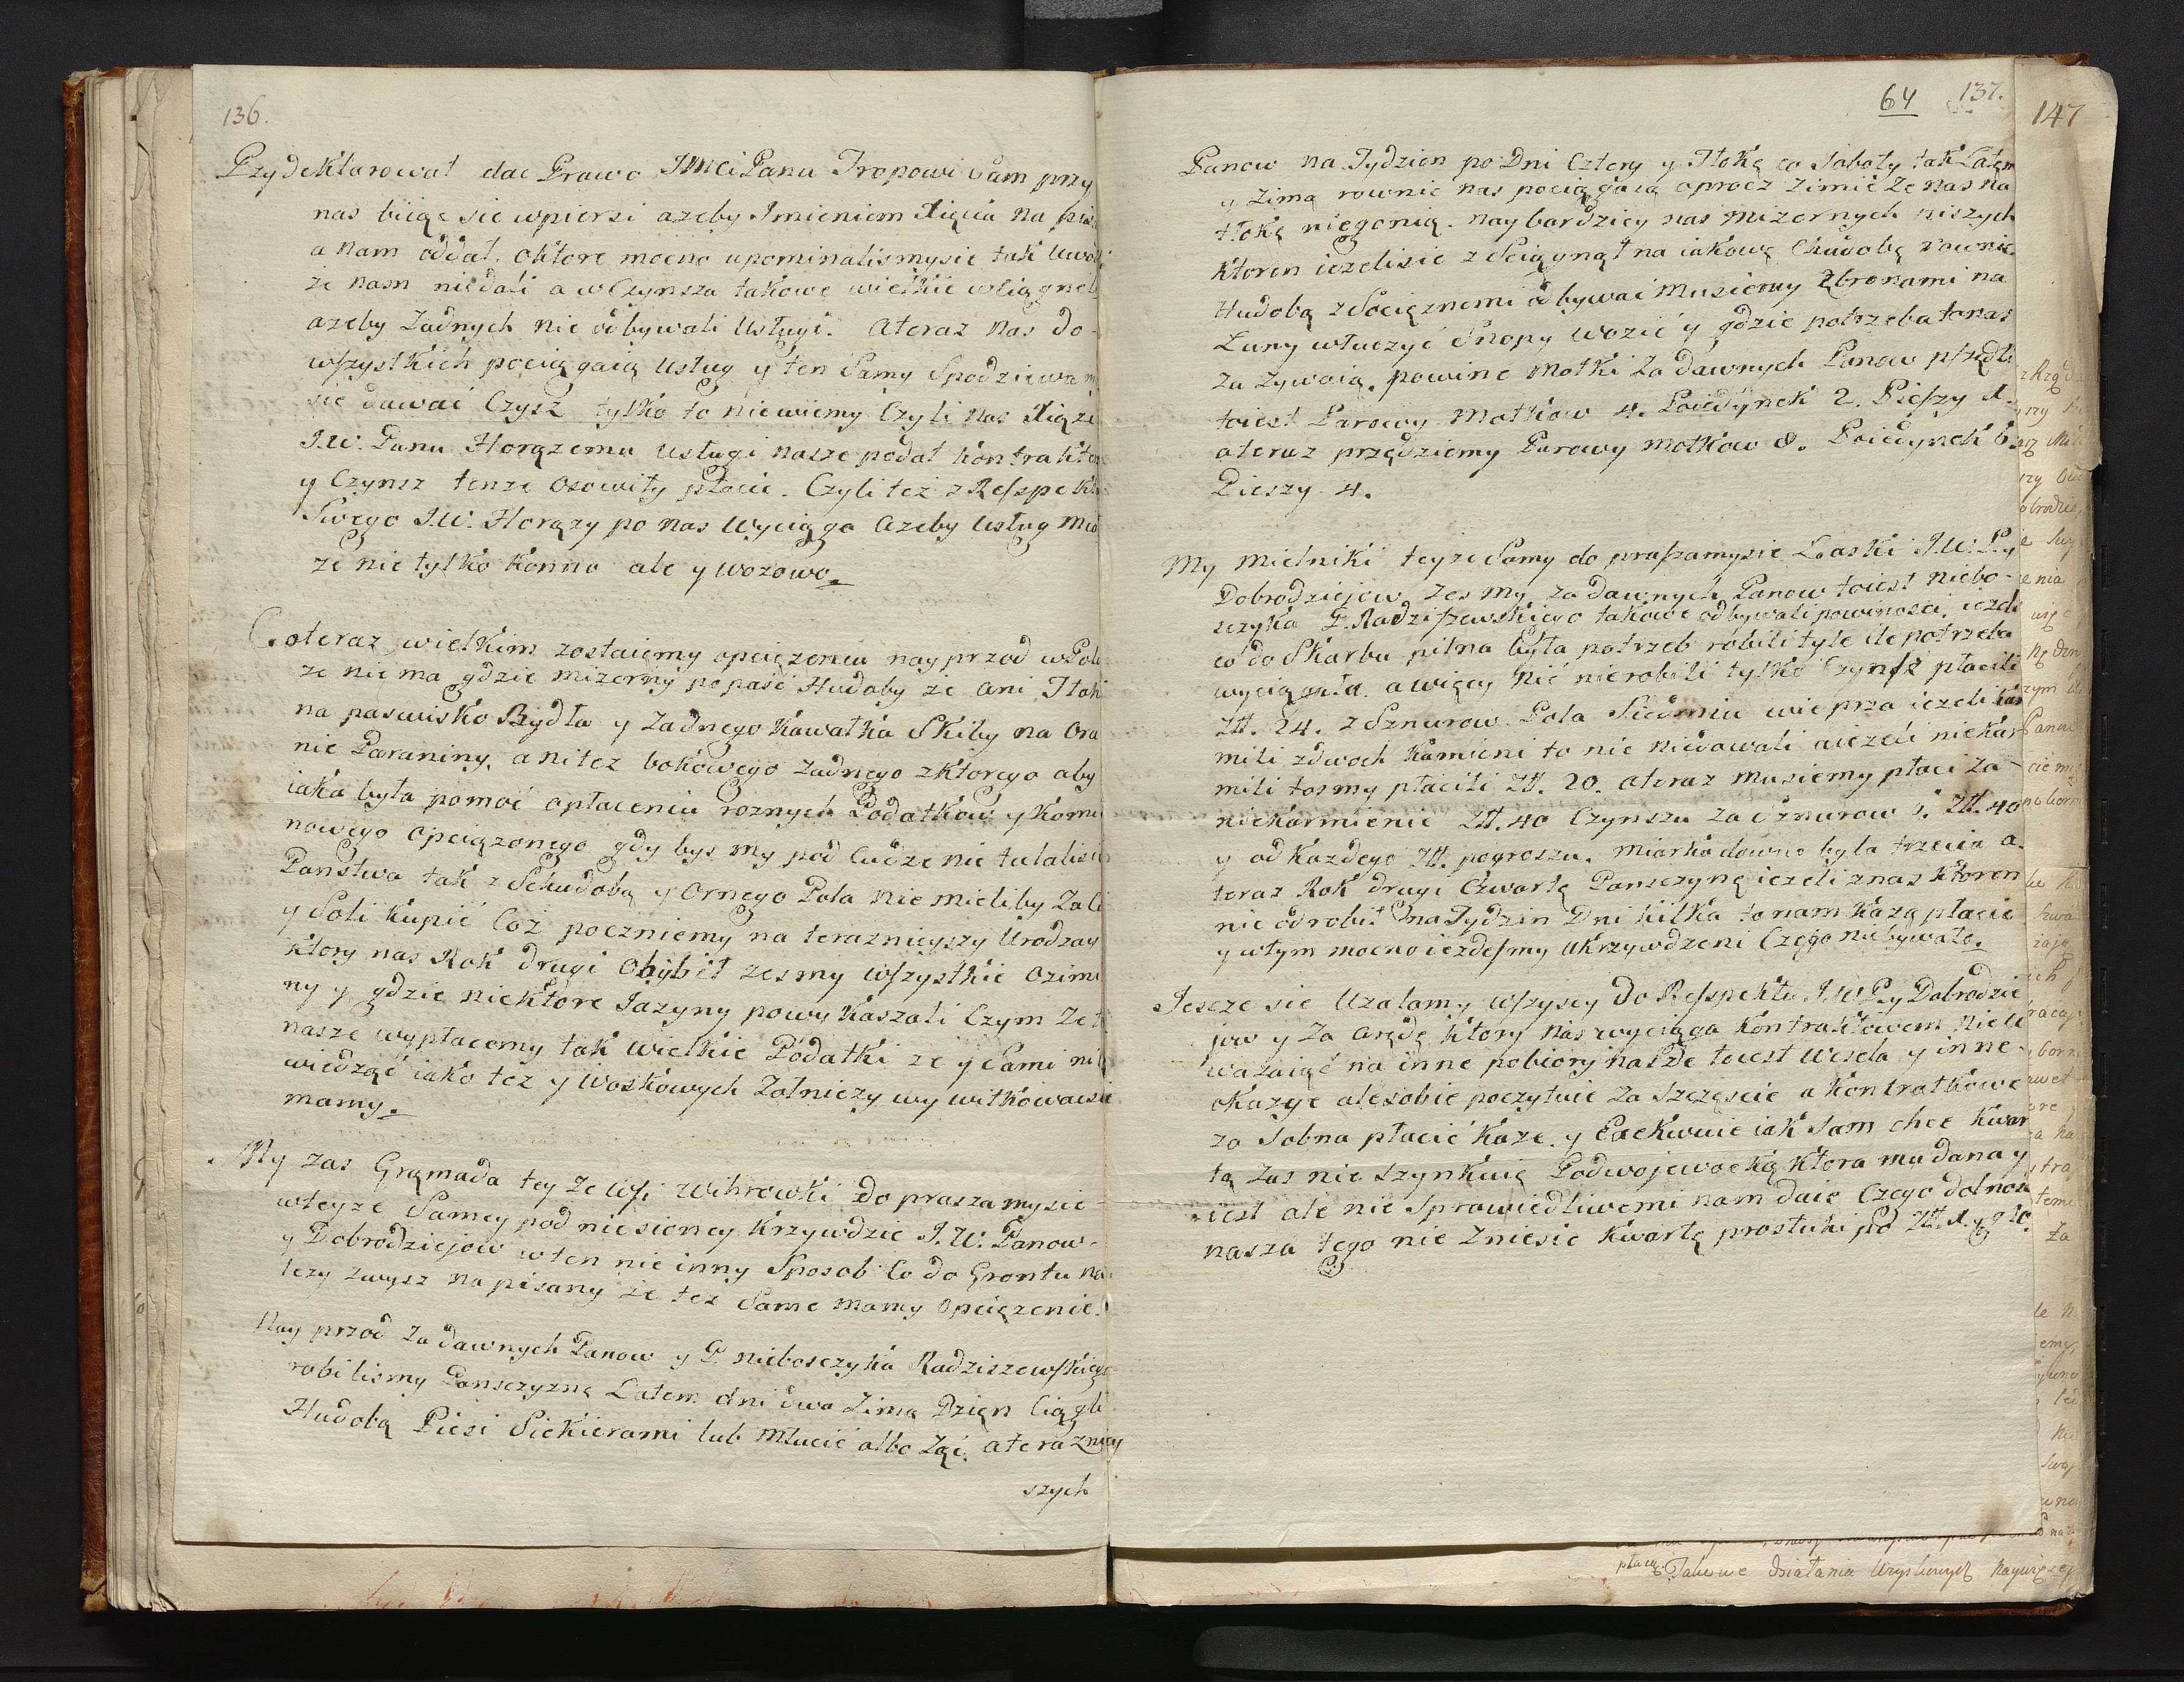 136.
Przydeklarował dac Prawo JmciPanu Tropowi Sam przy
nas biiąc sie wpiersi azeby Imieniem Xięcia na
a nam oddał. oktore mocno upominalismysie tak
ze nam niedali a w Czynsza takowe wielkie wciągneli
azeby Zadnych nie odbywali Usługi. Ateraz nas do-
wszystkich pociągaią Usług y ten Samy Spodziewa
sie dawać Czysz tylko to niewiemy Czyli nas Xiąze
J.W. Panu Horązemu Usługi nasze podał kontraktem
y Czynsz tenze Osowity płacic. Czyli tez z Respektu
Swego J.W. Horązy po nas Wyciąga Azeby Usług
ze nie tylko konno ale y wozowo.
Co teraz wielkim zostaięmy opciązeniu nayprzod w Polu
ze nie ma gdzie mizerny popaść Hudoby ze ani Tłoki
na paswisko Bydła y Zadnego kawałka Skiby na Ora
nie Paraniny. anitez bokowego Zadnego zktorego aby
iaka była pomoć opłaceniu roznych Podatkow y komi
nowego Opciązonego gdy bys my pod Cudze nie tulalisie
Panstwa tak z Schudobą y Ornego Pola nie mieliby Zali
y Soli kupić Coz poczniemy na terazniejszy Urodzay
ktory nas Rok drugi Ohybił zesmy wszystkie Ozimi
ny y gdzie niektore Jazyny powykaszali Czym Ze
nasze wypłacemy tak Wielkie Podatki ze y Sami nie
wiedząć iako tez y Woskowych Zołniezy wywitkowacsie
mamy.
My zas Grąmada tey Ze Wsi Wihrowki Do praszamysie
wteyze Samey pod niesioney krzywdzie J.W. Panow-
y Dobrodziejow w ten nie inny Sposob Co do Grontu na
lezy zwysz napisany ze tez Same mamy Opciązenie.
Nay przod Za dawnych Panow y P. nieboszczyka Radziszewskiego
robilismy Panszczyznę Latem dni dwa Zimą Dzięn Ciągli
Hudobą Piesi Siekierami lub Młucić albo Ząć. aterazniey
szych
64 137.
Panow na Tydzien po Dni Cztery y Tłokę co Saboty tak Latem
y Zimą rownie nas pociągaią oprocz Zimie Ze nas na
tłokę niegonią. naybardziey nas mizernych niszych
ktoren iezelisie z Sciągnął na iakowę Chudobę rownie
Hudobą z Sociąznemi odbywać Musiemy Zbronami na
Łany włuczyć Snopy wozić y gdzie potrzeba tonas
Za Zywaią. powine motki Za dawnych Panow przedli
toiest Parowy Motkow 4. Poiedynek 2. Pieszy 1.
ateraz przędziemy Parowy motkow 8. Poiedynek 6.
Pieszy 4.
My mielniki teyze Samy do praszamysie Łaski J.W. P. y
Dobrodziejow zes my za dawnych Panow toiest niebo-
szczyka P. Radziszewskiego takowe odbywali powinosci. iezeli
co do Skarbu pilna była potrzeb robili tyle ile potrzeba
wyciągała. awięcy nić nierobili tylko Czynsz płacili
Zł. 24. z Sznurow Pola Siedmiu wieprza iezeli kar
mili zdwoch kamieni to nie niedawali aiezeli niekar
mili tosmy płacili Zł. 20. ateraz musiemy płaci Za-
niekarmienie Zł. 40 Czynszu Za Sznurow 5. Zł. 40
y od kazdego Zł. pogroszu. miarka dawno byla trzecia a.
teraz Rok drugi Czwartę Panszczynę iezeli znas ktoren
nie odrobił na Tydzin Dni kilka to nam kazą płacic
y wtym mocno iezdesmy Ukrzywdzeni Czego niebywało.
Jescze sie Uzalamy wszyscy Do Respektu J.W. P. y Dobrodzie
jow y Za arędę ktory nas wyciąga kontraktowem nie u
wazaiąć na inne pobiory nasze toiest Wesela y inne-
okazye alesobie poczytuie Za Szczęscie a kontratkowe
za Sobna płacić kaze. y Eaekwuie iak Sam chce kwar
tą Zas nie Szynkuię Podwojewocką ktora ma dana y
iest ale nie Sprawiedliwemi nam daie Czego dolnosc
nasza tego nie Zniesie kwartę prostuhi po Zł. 1. g. 10.
147
płacą. Takowe działania Urzyskowych naywięcey